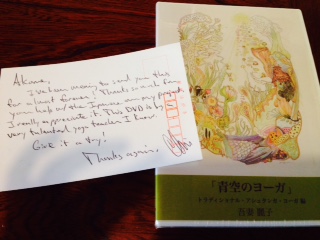 Akane,
I've been meaning to send you this
for almost forever! Thanks so much for
your help w/ the Japanese on my projects.
I really appreciate it. This DVD is by a
very talented yoga teacher I know.
Give it a try!
Thanks again,
「青空のヨーガ」
トラディショナル・アシュタンガ・ヨーガ 編